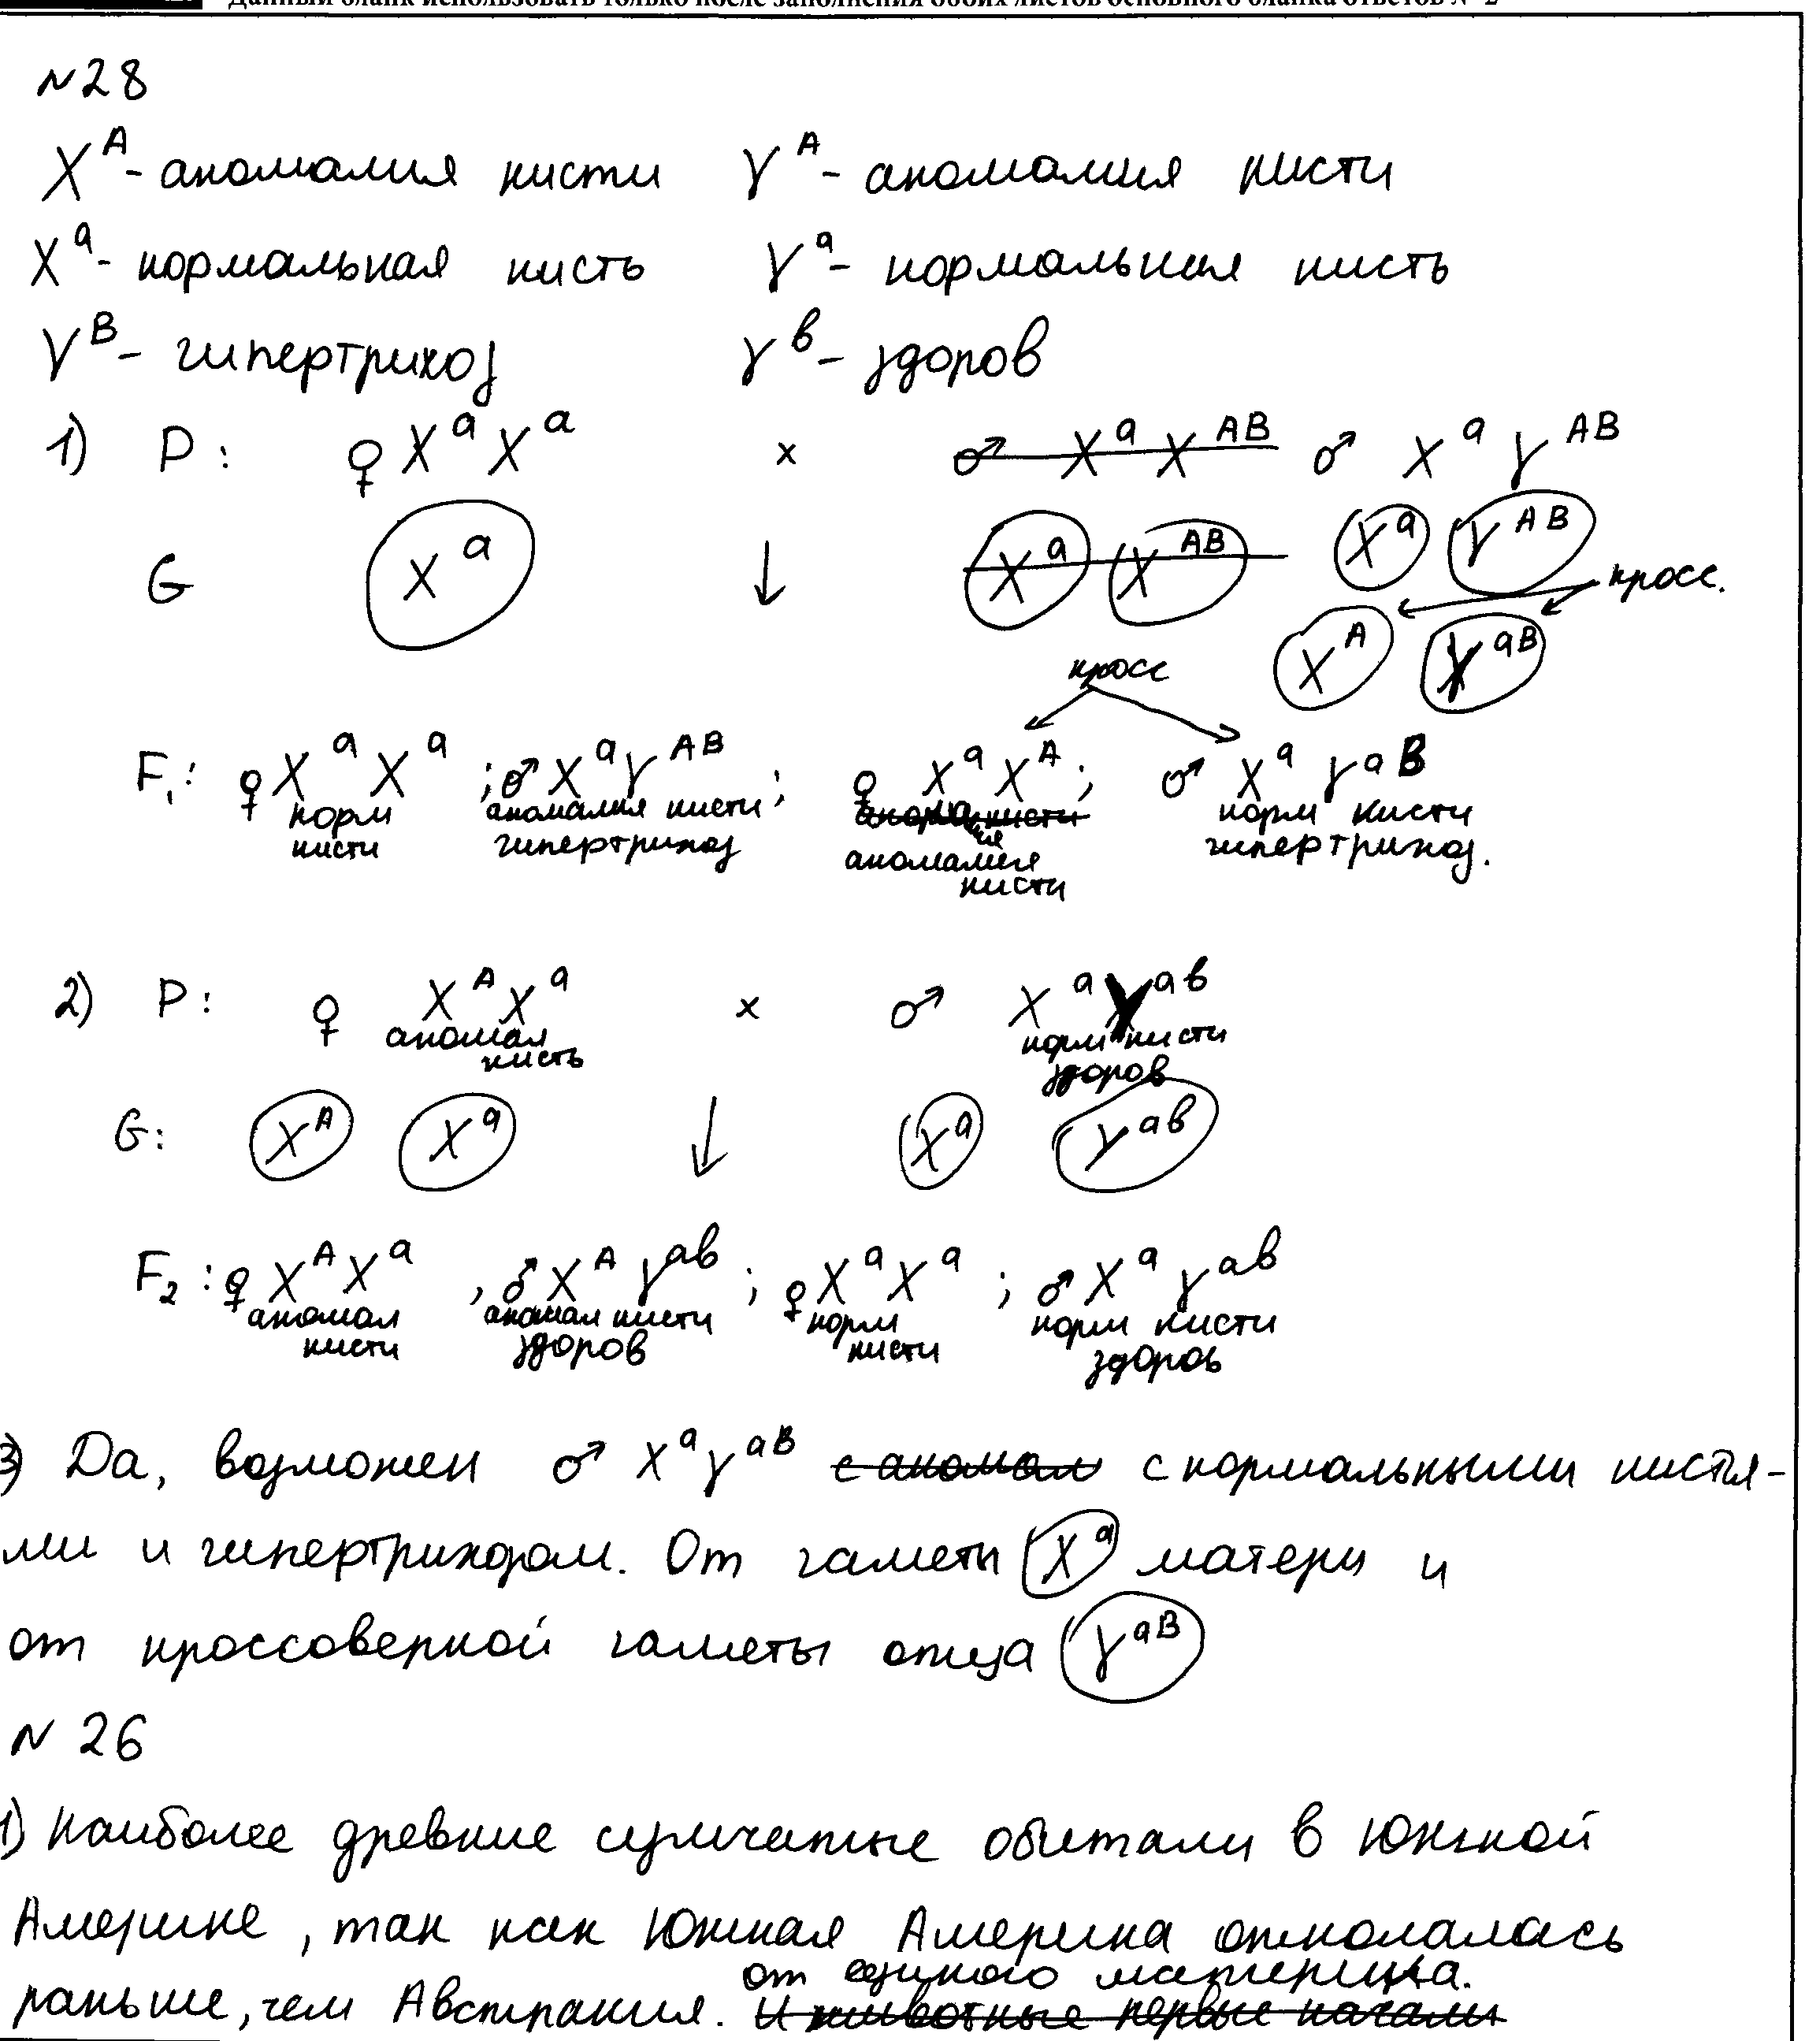 Данный бланк использовать только после заполнения обоих листов основного бланка ответов № 2
№28
X^A - аномалия кисти Y^A - аномалия кисти
X^a - нормальная кисть Y^a - нормальная кисть
Y^B - гипертрихоз Y^b - здоров
1) P: ♀ X^a X^a × ♂ X^a X^AB ♂ X^a Y^AB
G X^a ↓ X^a X^AB X^a Y^AB
кросс.
X^A Y^aB
кросс
F1: ♀ X^a X^a ; ♂ X^a Y^AB ; ♀ X^a X^A ; ♂ X^a Y^aB
норм кисти аномалия кисти гипертрихоз аномалия кисти норм кисти гипертрихоз.
2) P: ♀ X^A X^a × ♂ X^a Y^ab
аномал кисть норм кисти здоров
G: X^A X^a ↓ X^a Y^ab
F2: ♀ X^A X^a , ♂ X^A Y^ab ; ♀ X^a X^a ; ♂ X^a Y^ab
аномал кисти аномал кисти здоров норм кисти норм кисти здоров
3) Да, возможен ♂ X^a Y^aB с аномал с нормальными кистя-
ми и гипертрихозом. От гаметы X^a матери и
от кроссоверной гаметы отца Y^aB
№ 26
1) Наиболее древние сумчатые обитали в Южной
Америке, так как Южная Америка откололась
раньше, чем Австралия. от единого материка.
И животные первые начали